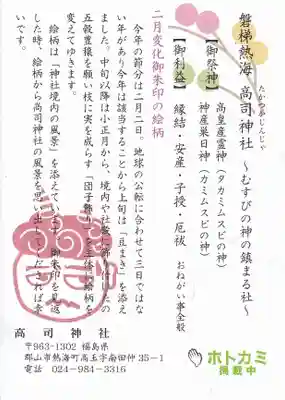 磐梯熱海 高司神社 ～むすびの神の鎮まる社～
たかつかさじんじゃ
【御祭神】 高皇産霊神（タカミムスビの神）
神産巣日神（カミムスビの神）
【御利益】 縁結・安産・子授・厄祓 おねがい事全般
二月変化御朱印の絵柄
今年の節分は二月二日。地球の公転に合わせて三日ではな
い年があり今年は該当することから上旬は「豆まき」を添え
ました。中旬以降は小正月から、境内や社殿に飾りしたの
五穀豊穣を願い枝に実を成らす「団子飾り」を主体に絵柄を
変えてゆきます。
絵柄は「神社境内の風景」を添えています。御朱印を見返
した時、絵柄から高司神社の風景を思い出してくだされば幸
いです。
高司神社
〒963-1302 福島県
郡山市熱海町高玉字南田仲 35－1
電話 024-984-3316
ホトカミ
掲載中